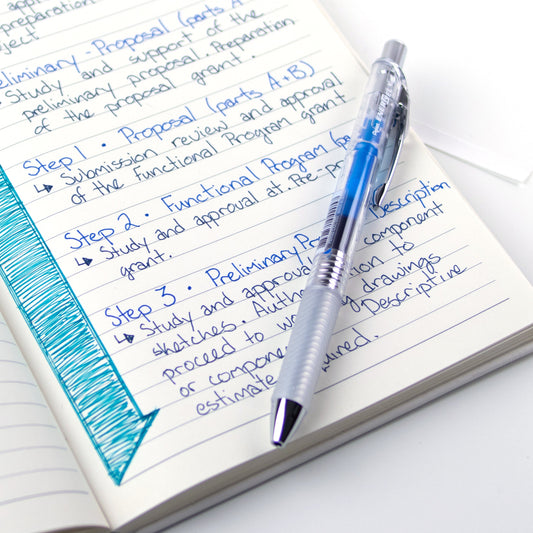 preparation
ject
eliminary - Proposal (parts A
Study and support of the
preliminary proposal. Preparation
of the proposal grant.
Step 1 • Proposal (parts A+B)
↳ Submission review and approval
of the Functional Program grant
Step 2 • Functional Program (pa
↳ Study and approval at. Pre-po
grant.
Step 3 • Preliminary Pro Description
↳ Study and approva component
sketches. Autho tion to
proceed to wo drawings
or compone Descriptive
estimate ined.
Pentel ENERGEL